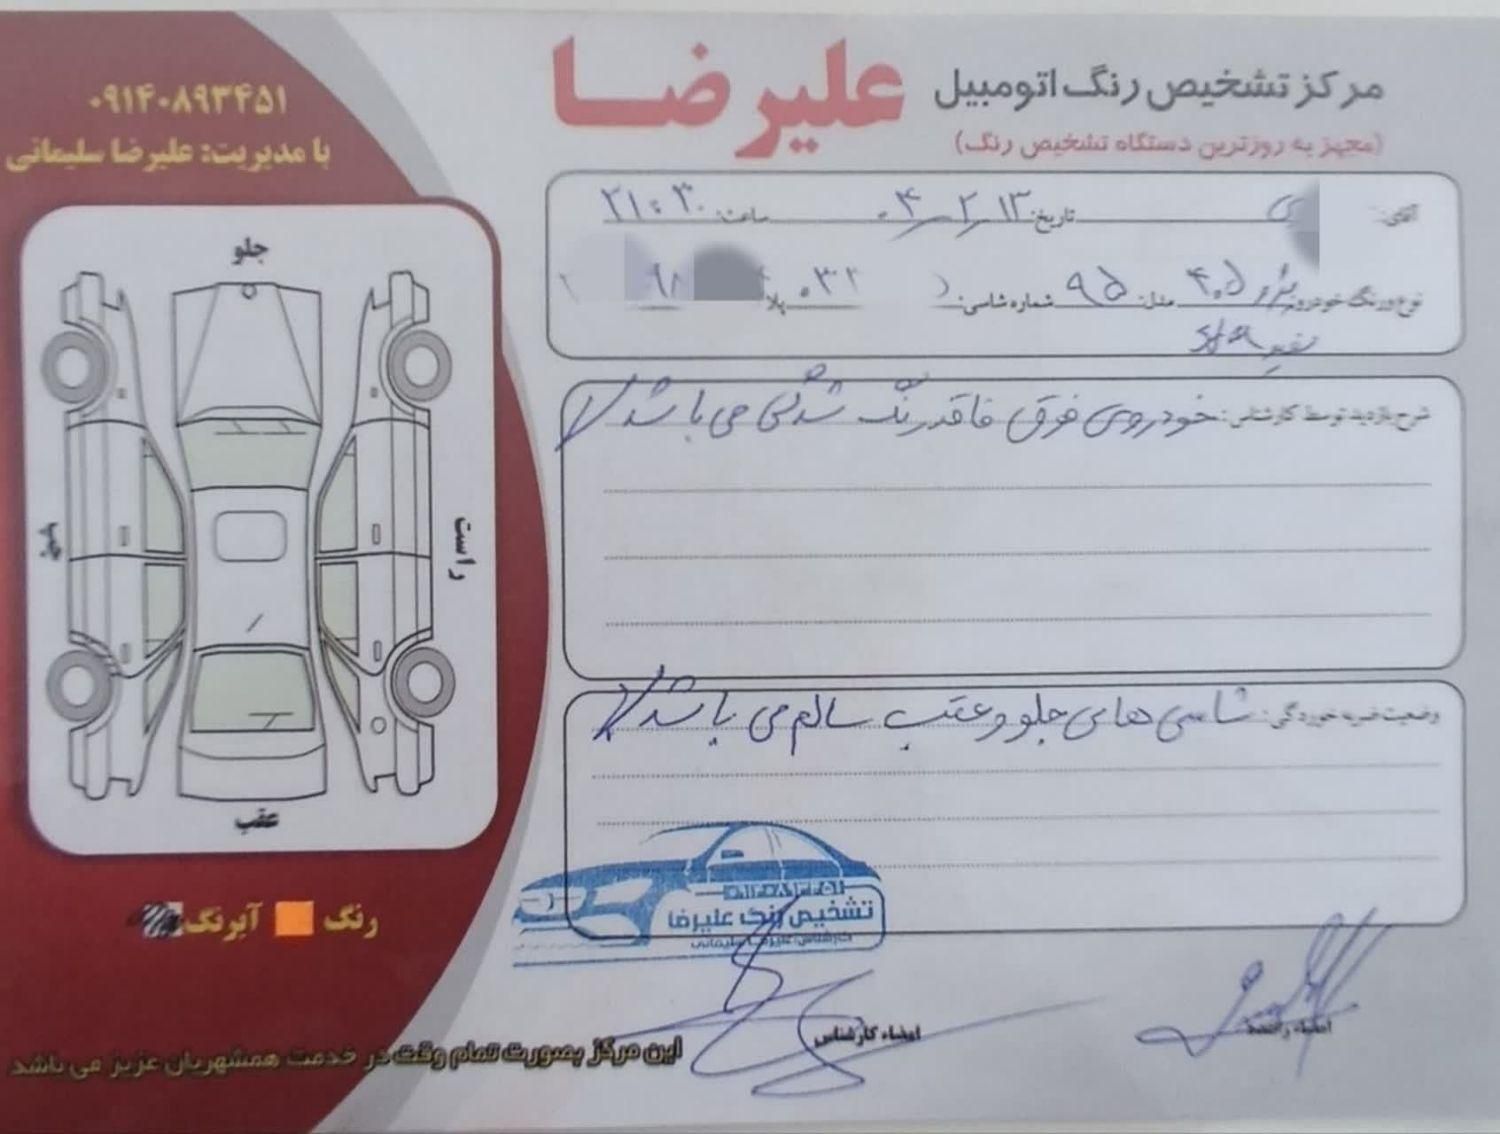 مرکز تشخیص رنگ اتومبیل علیرضا
(مجهز به روزترین دستگاه تشخیص رنگ)
۰۹۱۴۰۸۹۳۴۵۱
با مدیریت: علیرضا سلیمانی
آقای: تاریخ: ۰۴/۲/۱۳ ساعت: ۲۱:۳۰
نوع و رنگ خودرو: پژو ۴۰۵ مدل: ۹۵ شماره شاسی: ۰۳۲ پلا ۹۸
سفید
شرح بازدید توسط کارشناس: خودروی فوق فاقد رنگ شدگی می باشد
وضعیت ضربه خوردگی: شاسی های جلو و عقب سالم می باشد
جلو
چپ
راست
عقب
رنگ
آبرنگ
تشخیص رنگ علیرضا
کارشناس: علیرضا سلیمانی
امضاء کارشناس
این مرکز بصورت تمام وقت در خدمت همشهریان عزیز می باشد